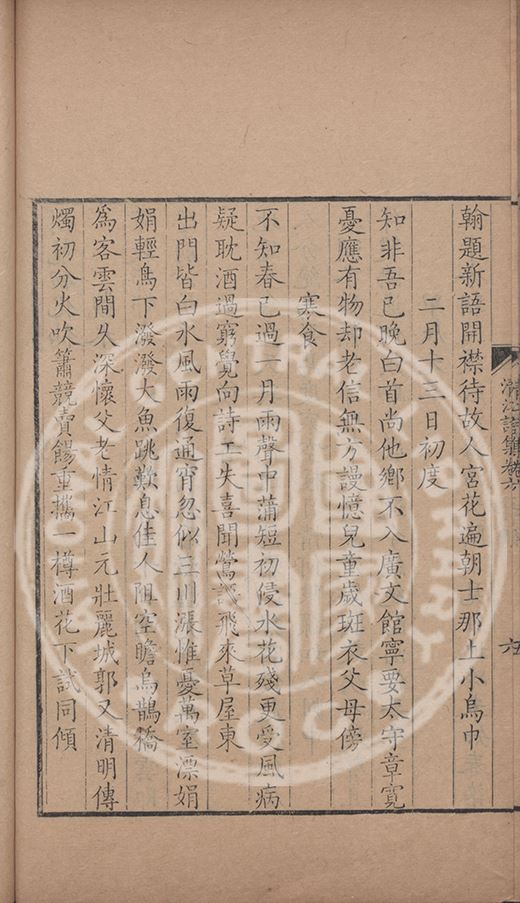 翰題新語開襟待故人宮花遍朝士那上小烏巾
二月十三日初度
知非吾已晚白首尚他鄉不入廣文館寧要太守章寬
憂應有物却老信無方謾憶兒童歲斑衣父母傍
寒食
不知春已過一月雨聲中蒲短初侵水花殘更受風病
疑耽酒過窮覺向詩工失喜聞鶯語飛來草屋東
出門皆白水風雨復通宵忽似三川漲惟憂萬室漂娟
娟輕鳥下潑潑大魚跳歎息佳人阻空瞻烏鵲橋
為客雲間久深懷父老情江山元壯麗城郭又清明傳
燭初分火吹簫競賣餳重攜一樽酒花下試同傾